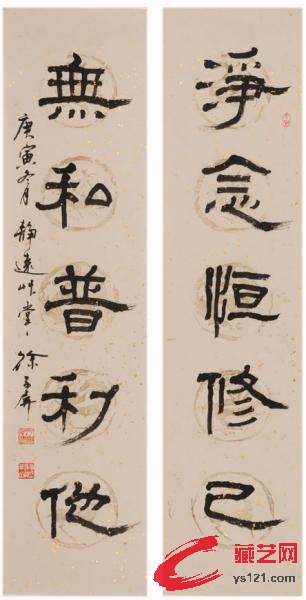 淨念恒修己
無和普利他
庚寅冬月 静遠艸堂、徐
藏艺网
ys121.com